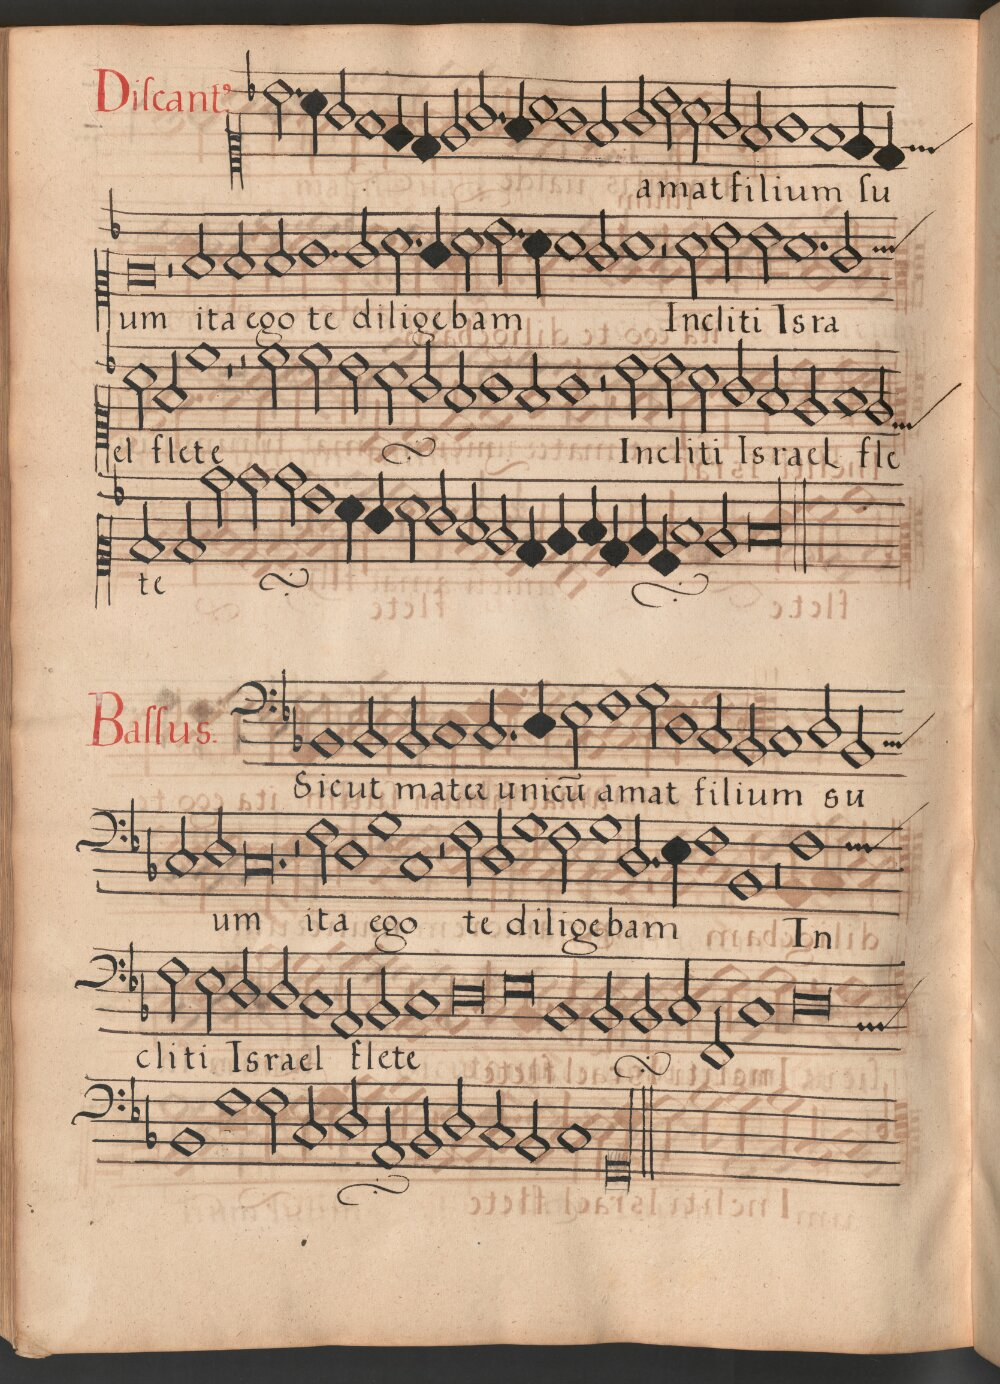 Diſcantꝰ.
amat filium ſu
um ita ego te diligebam Incliti Isra
el flete Incliti Israel fle
te
Baſſus.
Sicut mater unicū amat filium su
um ita ego te diligebam In
cliti Israel flete